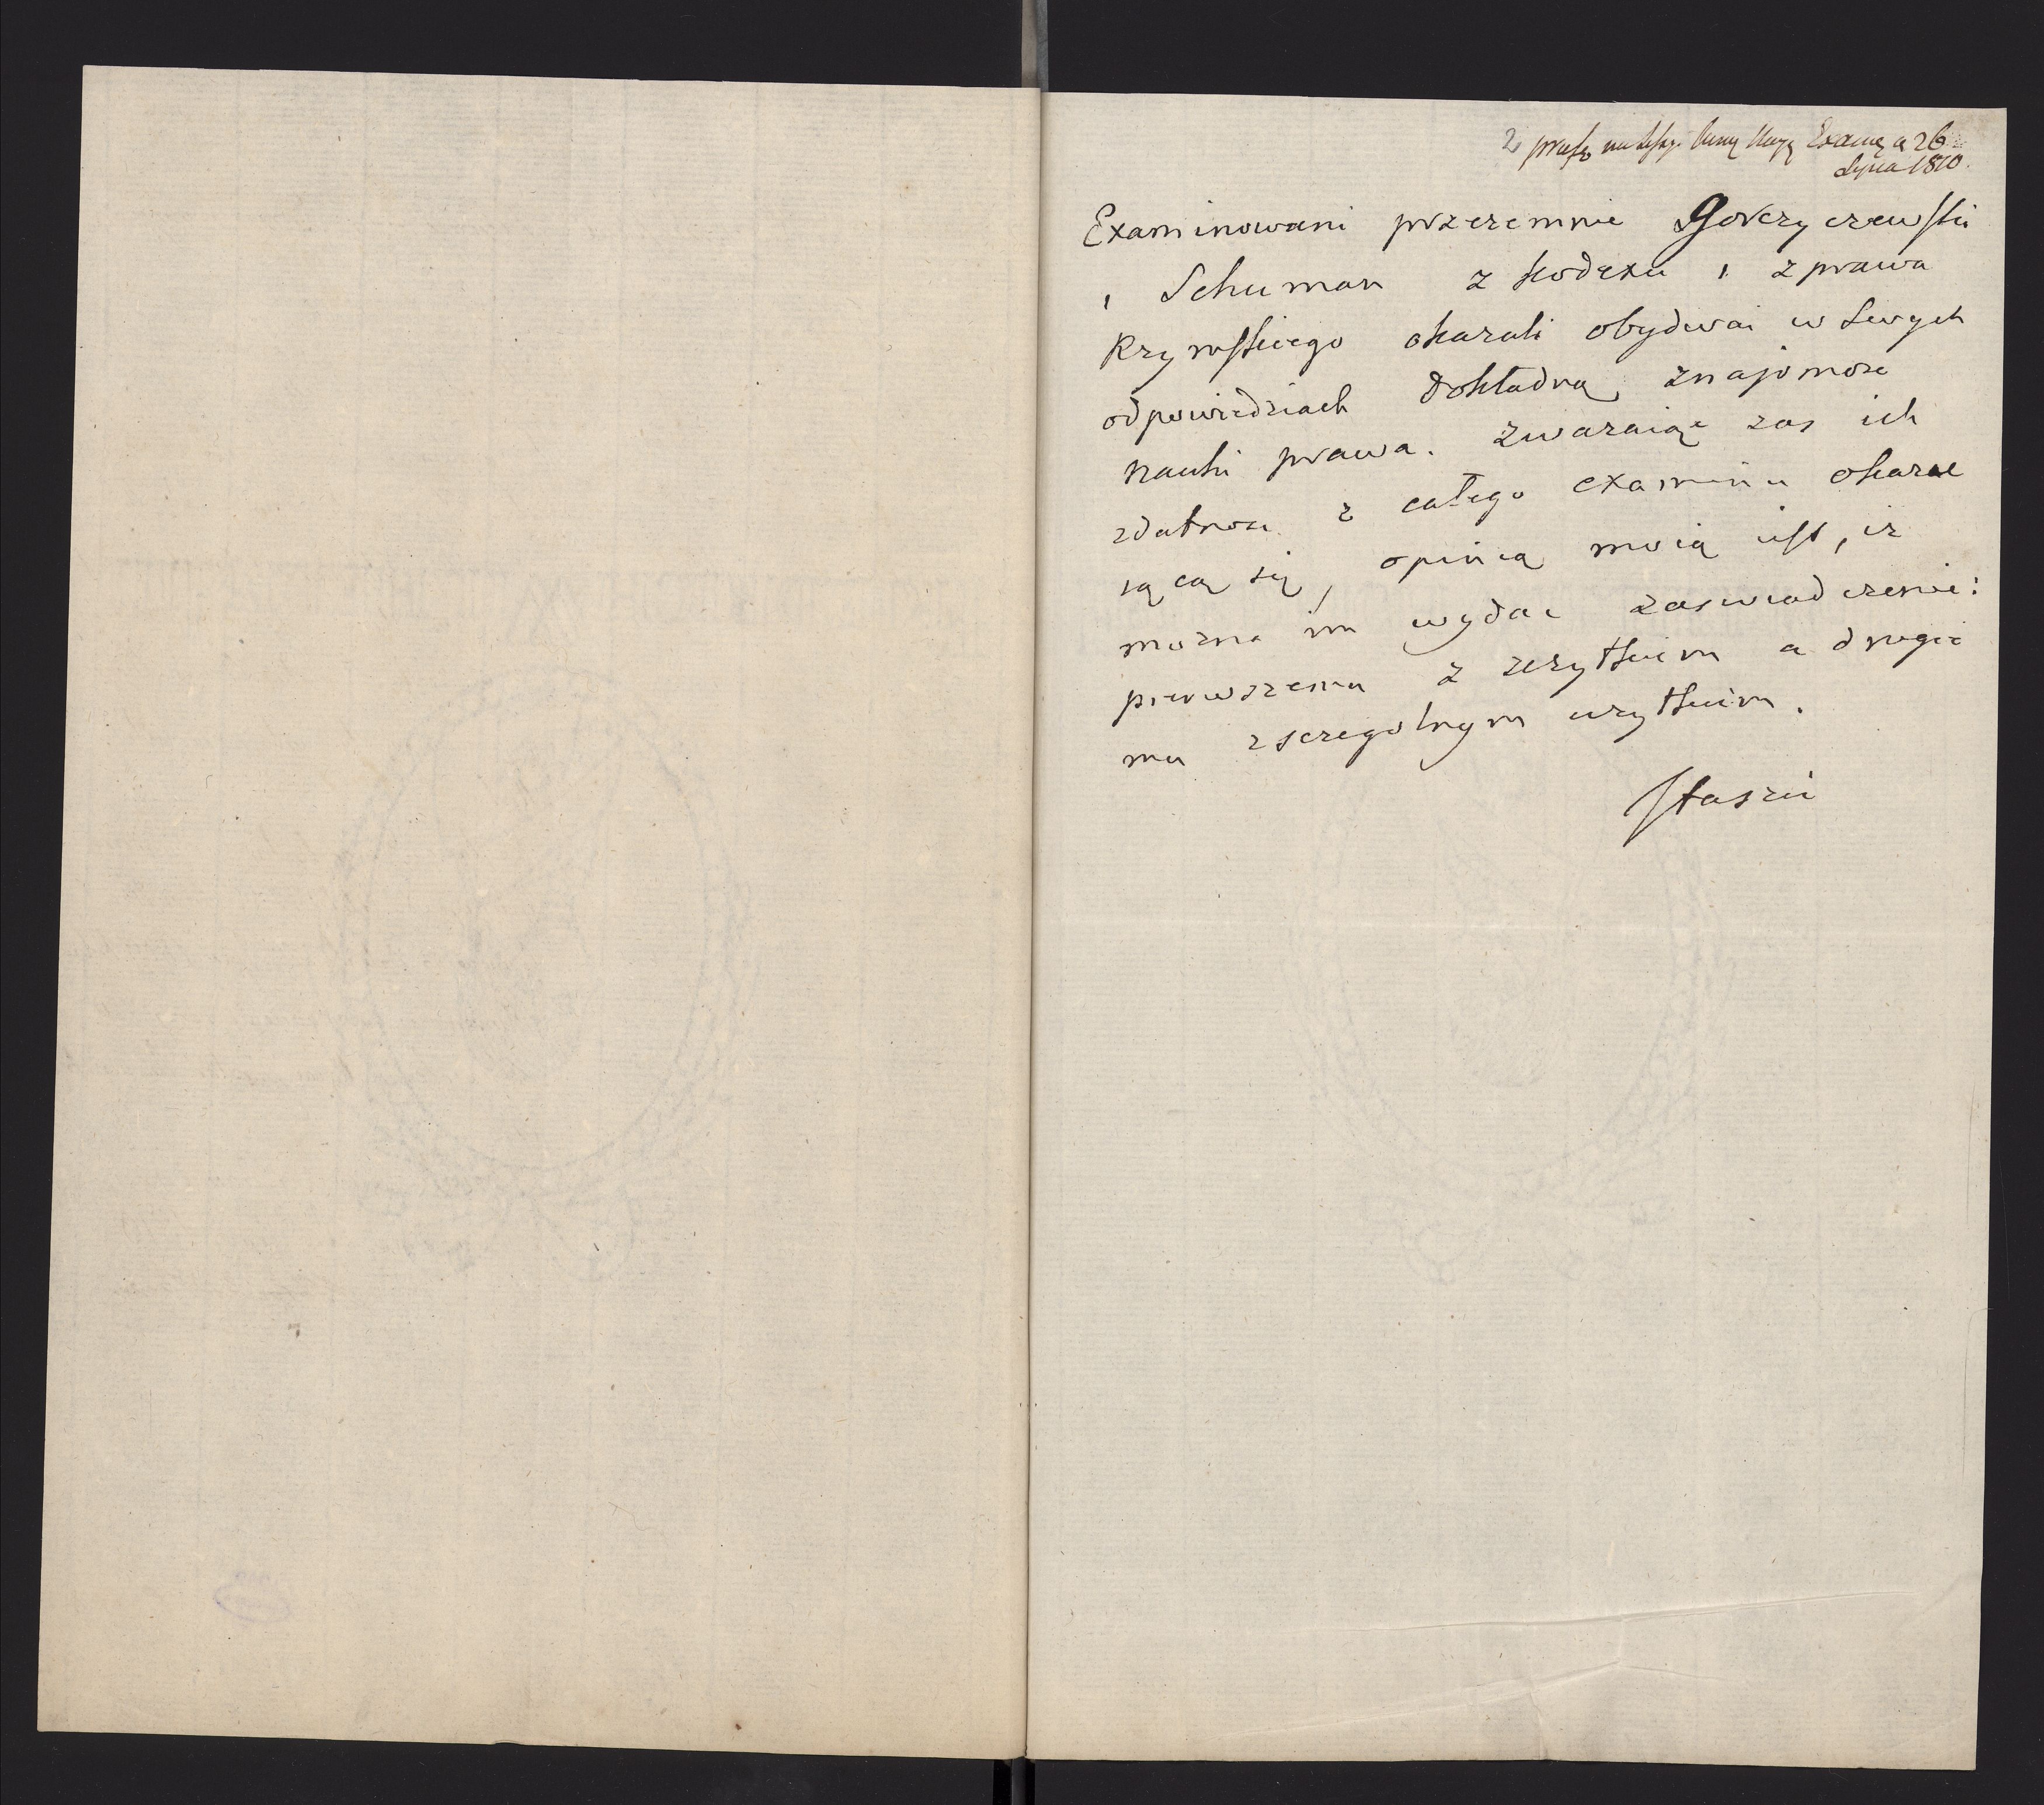 2
Examę a 26
Lipca 1810.
Examinowani przezemnie Gorczyczewski
i Schuman z kodexu i z prawa
Rzymskiego okazali obydwai w swych
odpowiedziach dokładną znajomosc
nauki prawa. Zwazaiąc zas ich
zdatnosc z całego examinu okazu
iącą się, opinią moią iest, iz
mozna im wydac zaswiadczenie:
pierwszemu z uzytkiem a drugie
mu z sczegolnym uzytkiem.
Staszic